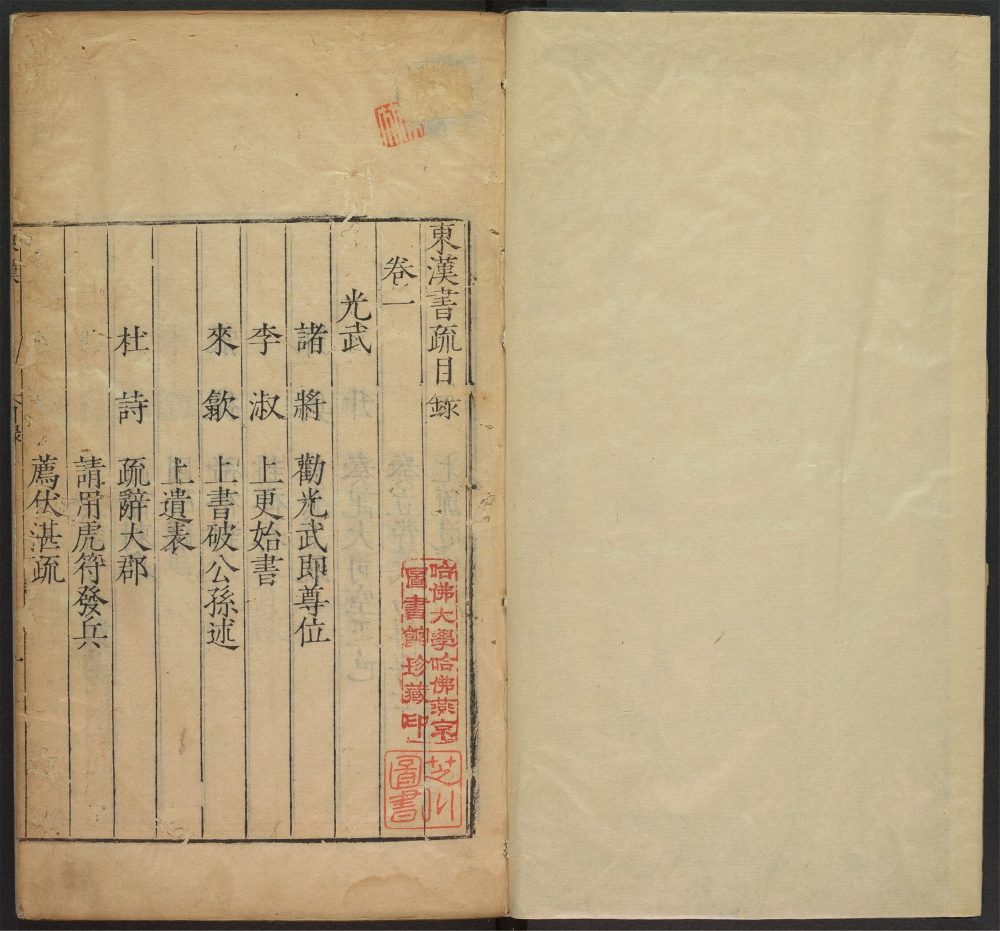 東漢書疏目錄
卷一
光武
諸將 勸光武即尊位
李淑 上更始書
來歙 上書破公孫述
上遺表
杜詩 疏辭大郡
請用虎符發兵
薦伏湛疏
哈佛大學哈佛燕京
圖書館珍藏印
芝川
圖書